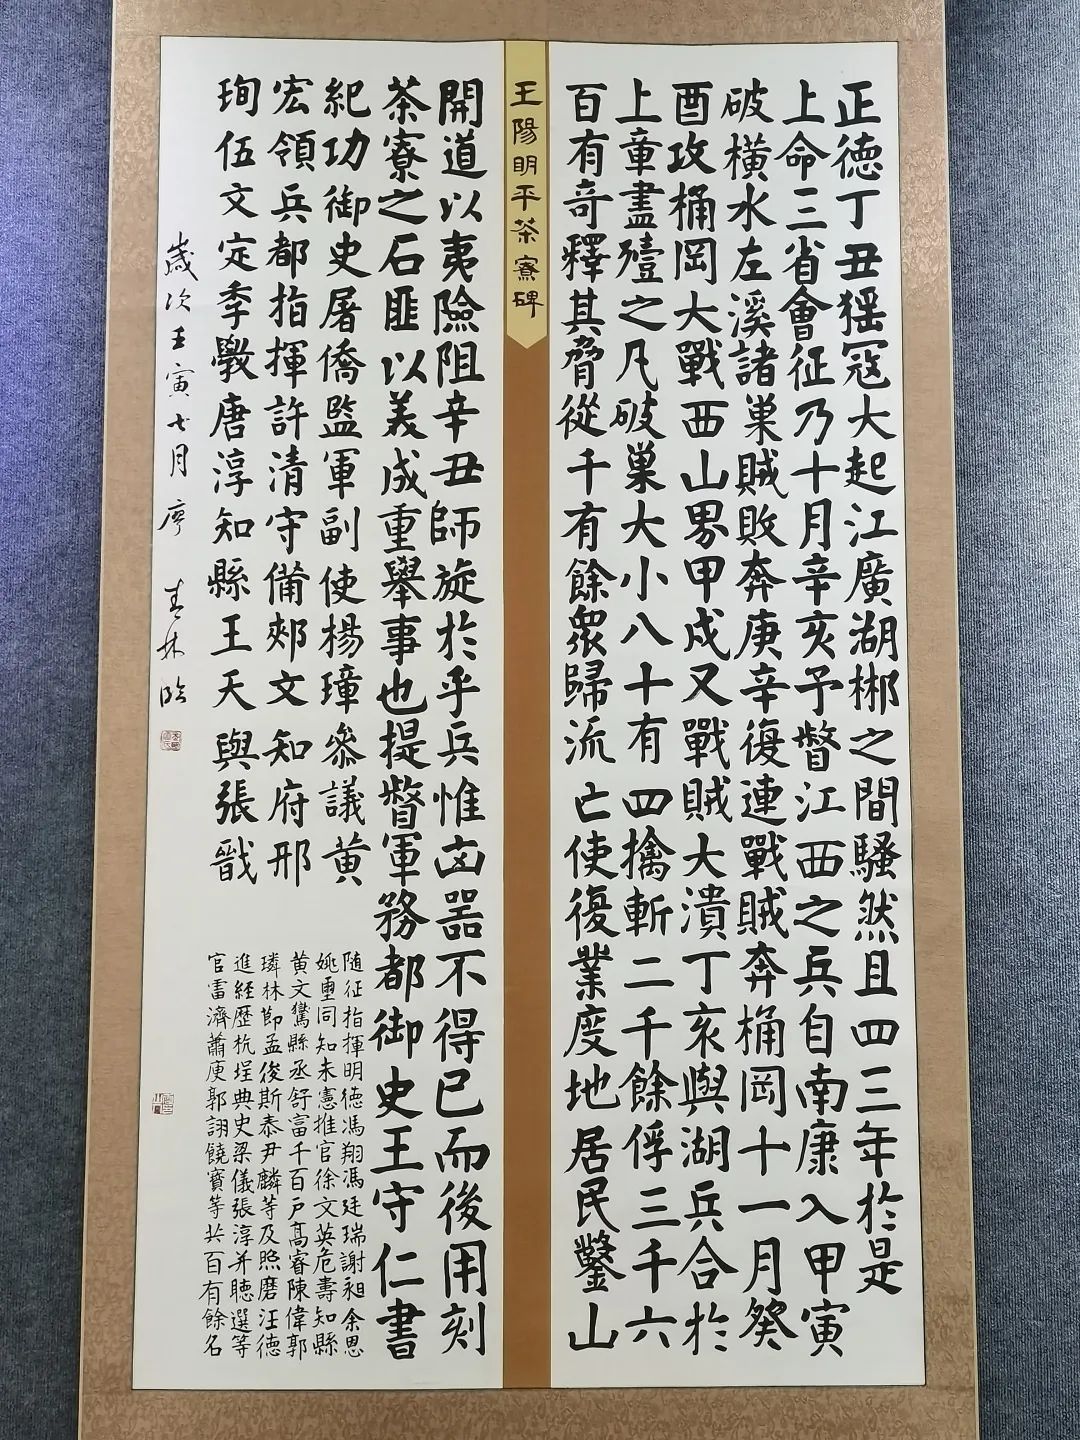 正德丁丑猺寇大起江廣湖郴之間騷然且四三年於是
上命三省會征乃十月辛亥予督江西之兵自南康入甲寅
破橫水左溪諸巢賊敗奔庚辛復連戰賊奔桶岡十一月癸
酉攻桶岡大戰西山界甲戌又戰賊大潰丁亥與湖兵合於
上章盡殪之凡破巢大小八十有四擒斬二千餘俘三千六
百有奇釋其脅從千有餘眾歸流亡使復業度地居民鑿山
王陽明平茶寮碑
開道以夷險阻辛丑師旋於乎兵惟凶器不得已而後用刻
茶寮之石匪以美成重舉事也提督軍務都御史王守仁書
紀功御史屠僑監軍副使楊璋參議黄
宏領兵都指揮許清守備郟文知府邢
珣伍文定季斆唐淳知縣王天與張戩
随征指揮明德馮翔馮廷瑞謝昶余恩
姚璽同知朱憲推官徐文英危壽知縣
黄文鸑縣丞舒富千百戶高睿陳偉郭
璘林節孟俊斯泰尹麟等及照磨汪德
進經歷杭埕典史梁儀張淳并聽選等
官雷濟蕭庾郭詡饒寶等共百有餘名
歲次壬寅七月廖 林臨